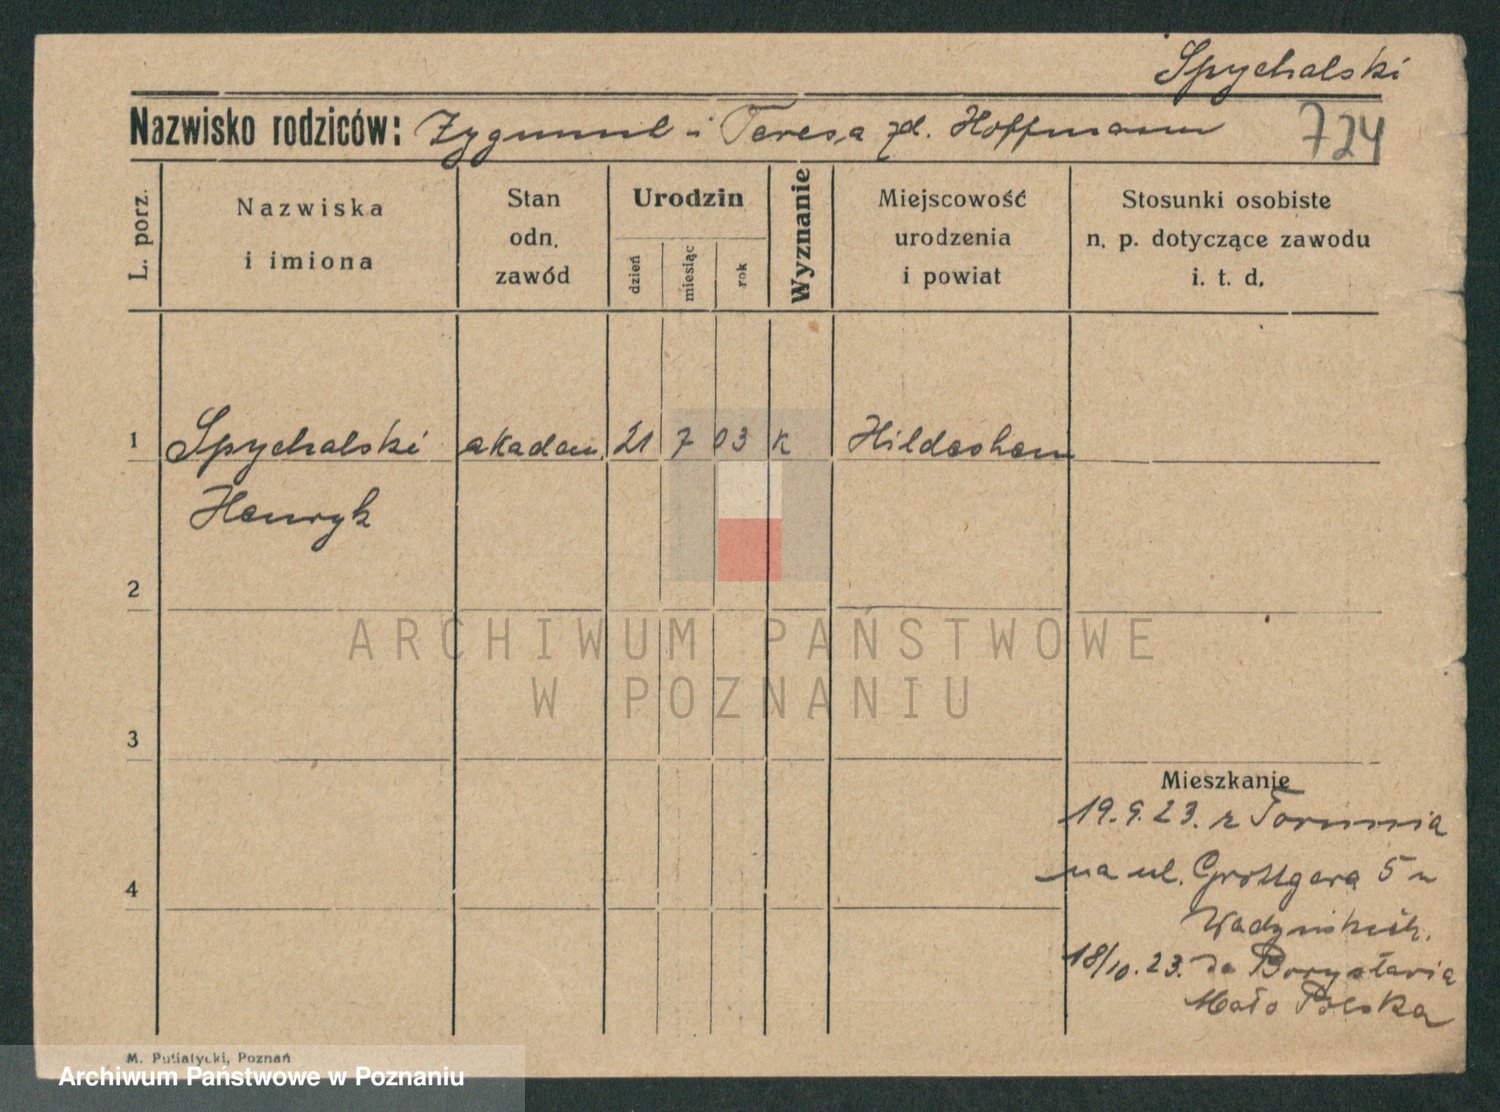 Spychalski
Nazwisko rodziców: Zygmunt i Teresa zd. Hoffmann
724
L. porz.
Nazwiska
i imiona
Stan
odn.
zawód
Urodzin
dzień
miesiąc
rok
Wyznanie
Miejscowość
urodzenia
i powiat
Stosunki osobiste
n. p. dotyczące zawodu
i. t. d.
1 Spychalski akadem. 21 7 03 k Hildesheim
Henryk
2
3
4
Mieszkanie
19.9.23. z Torunia
na ul. Grottgera 5 u
18/10.23. do Borysławia
Mało Polska
ARCHIWUM PAŃSTWOWE
W POZNANIU
M. Putiatycki, Poznań
Archiwum Państwowe w Poznaniu